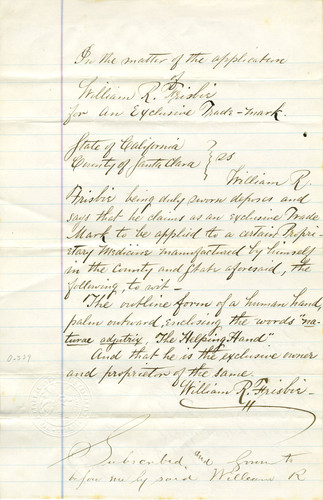 In the matter of the application
of
William R. Frisbie
for an Exclusive Trade-Mark.
State of California
County of Santa Clara } ss
William R.
Frisbie being duly sworn deposes and
says that he claims as an exclusive Trade
Mark to be applied to a certain Propri-
etary Medicine manufactured by himself
in the County and State aforesaid, the
following, to wit -
The outline form of a human hand,
palm outward, enclosing the words "na-
turae adjutrix, The Helping Hand.
And that he is the exclusive owner
and proprietor of the same.
William R. Frisbie
Subscribed and Sworn to
before me by said William R